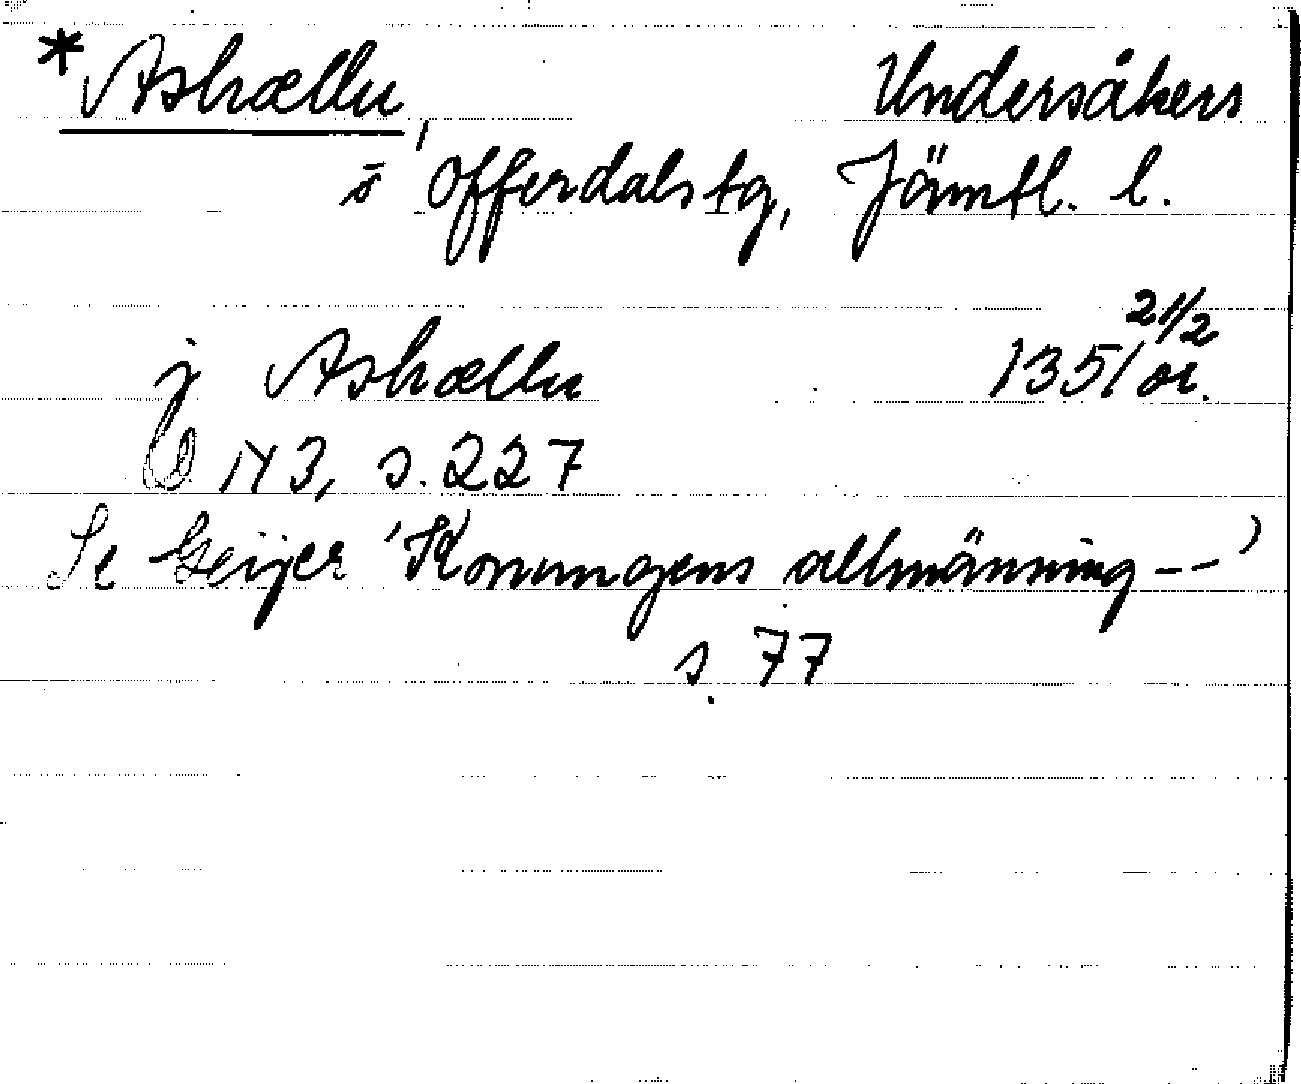 *Askællu, Undersåkers
i Offerdals tg, Jämtl. l.
j Askællu 1351 21/2 or.
Ö 143, s. 227
Se Geijer 'Konungens allmänning --'
s. 77